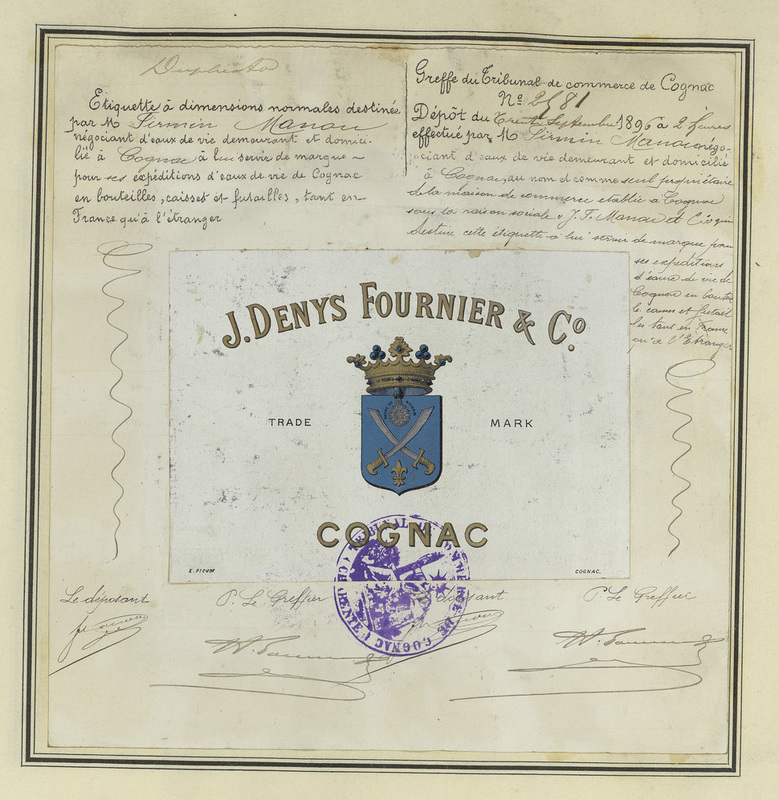 Duplicata
Etiquette à dimensions normales destinée
par Mr Firmin Manou
négociant d'eaux de vie demeurant et domici-
lié à Cognac à lui servir de marque
pour ses expéditions d'eaux de vie de Cognac
en bouteilles, caisses et futailles, tant en
France qu'à l'étranger
Greffe du Tribunal de commerce de Cognac
No 2581
Dépôt du trente Septembre 1896 à 2 heures
effectué par Mr Firmin négo-
ciant d'eaux de vie demeurant et domicilié
à Cognac, au nom et comme seul propriétaire
de la maison de commerce établie à Cognac
sous la raison sociale " J. F. et Co qui
destine cette étiquette à lui servir de marque pour
ses expéditions
d'eaux de vie de
Cognac en boutei
les caisses et futail
les tant en France
qu'à l'Etranger
J. DENYS FOURNIER & Co.
TRADE MARK
COGNAC
E. PICHOT COGNAC.
TRIBUNAL DE COMMERCE DE COGNAC (CHARENTE)
Le déposant P. Le Greffier Le déposant P. Le Greffier